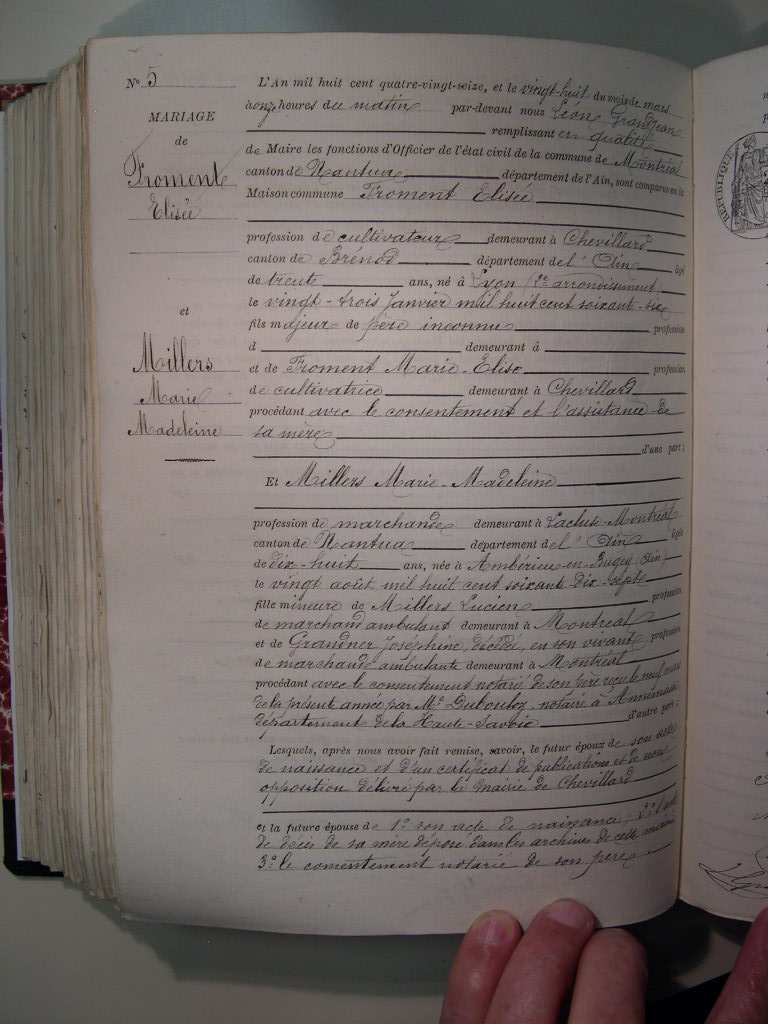 N° 5
MARIAGE
de
Froment
Elisée
et
Millers
Marie
Madeleine
L'An mil huit cent quatre-vingt-seize, et le vingt-huit du mois de mars
à onze heures du matin par-devant nous Léon Grandjean
remplissant en qualité
de Maire les fonctions d'Officier de l'état civil de la commune de Montréal
canton de Nantua département de l'Ain, sont comparus en la
Maison commune Froment Elisée
profession de cultivateur demeurant à Chevillard
canton de Brénod département de l'Ain âgé
de trente ans, né à Lyon (2e arrondissement)
le vingt-trois janvier mil huit cent soixante-six
fils majeur de père inconnu profession
d demeurant à
et de Froment Marie-Elise profession
de cultivatrice demeurant à Chevillard
procédant avec le consentement et l'assistance de
sa mère
d'une part;
Et Millers Marie-Madeleine
profession de marchande demeurant à Lacluse-Montréal
canton de Nantua département de l'Ain âgée
de dix-huit ans, née à Ambérieu-en-Bugey (Ain)
le vingt août mil huit cent soixante dix-sept
fille mineure de Millers Lucien profession
de marchand ambulant demeurant à Montréal
et de Grandner Joséphine, décédée, en son vivant profession
de marchande ambulante demeurant à Montréal
procédant avec le consentement notarié de son père reçu le neuf mars
de la présente année par Me Dubouloz, notaire à Annemasse
département de la Haute-Savoie d'autre part;
Lesquels, après nous avoir fait remise, savoir, le futur époux de son acte
de naissance et d'un certificat de publications et de non
opposition délivré par la mairie de Chevillard
et la future épouse de 1° son acte de naissance; 2° l'acte
de décès de sa mère déposé dans les archives de cette mairie
3° le consentement notarié de son père
RÉPUBLIQUE